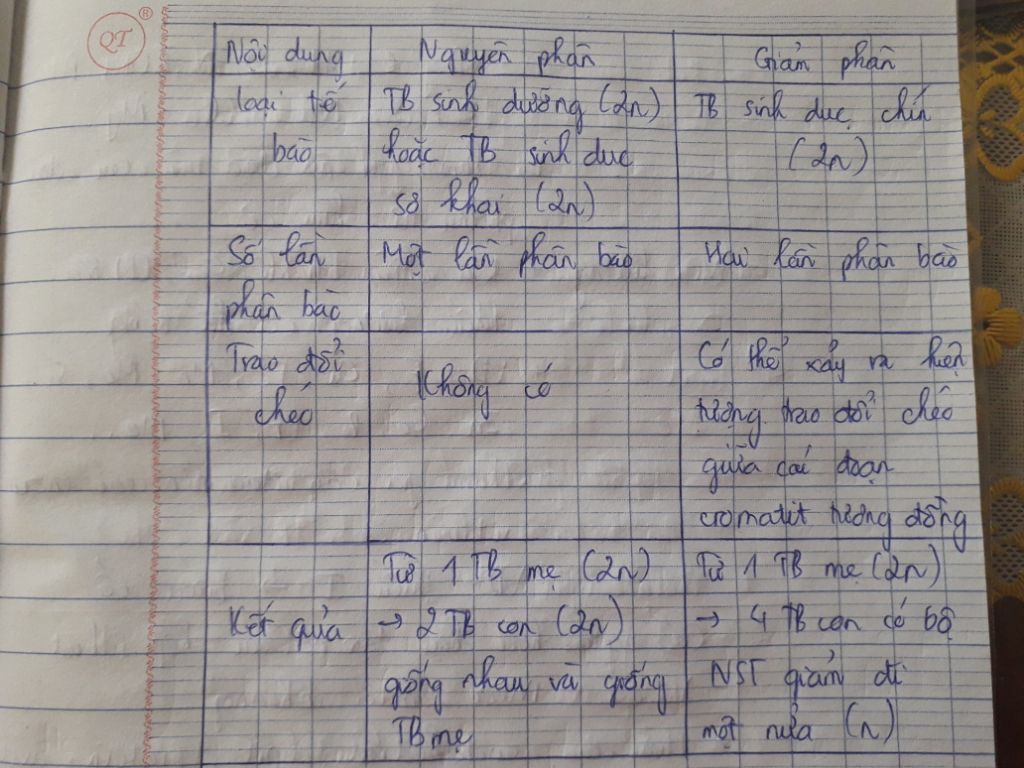 QT
Nội dung Nguyên phân Giảm phân
loại tế TB sinh dưỡng (2n) TB sinh dục chín
bào hoặc TB sinh dục (2n)
sơ khai (2n)
Số lần Một lần phân bào Hai lần phân bào
phân bào
Trao đổi Không có Có thể xảy ra hiện
chéo tượng trao đổi chéo
giữa các đoạn
cromatit tương đồng
Từ 1 TB mẹ (2n) Từ 1 TB mẹ (2n)
Kết quả → 2 TB con (2n) → 4 TB con có bộ
giống nhau và giống NST giảm đi
TB mẹ một nửa (n)